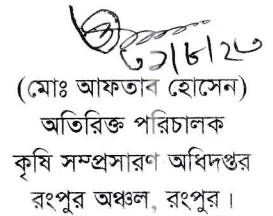 ৩১/৮/২৩
(মোঃ আফতাব হোসেন)
অতিরিক্ত পরিচালক
কৃষি সম্প্রসারণ অধিদপ্তর
রংপুর অঞ্চল, রংপুর।